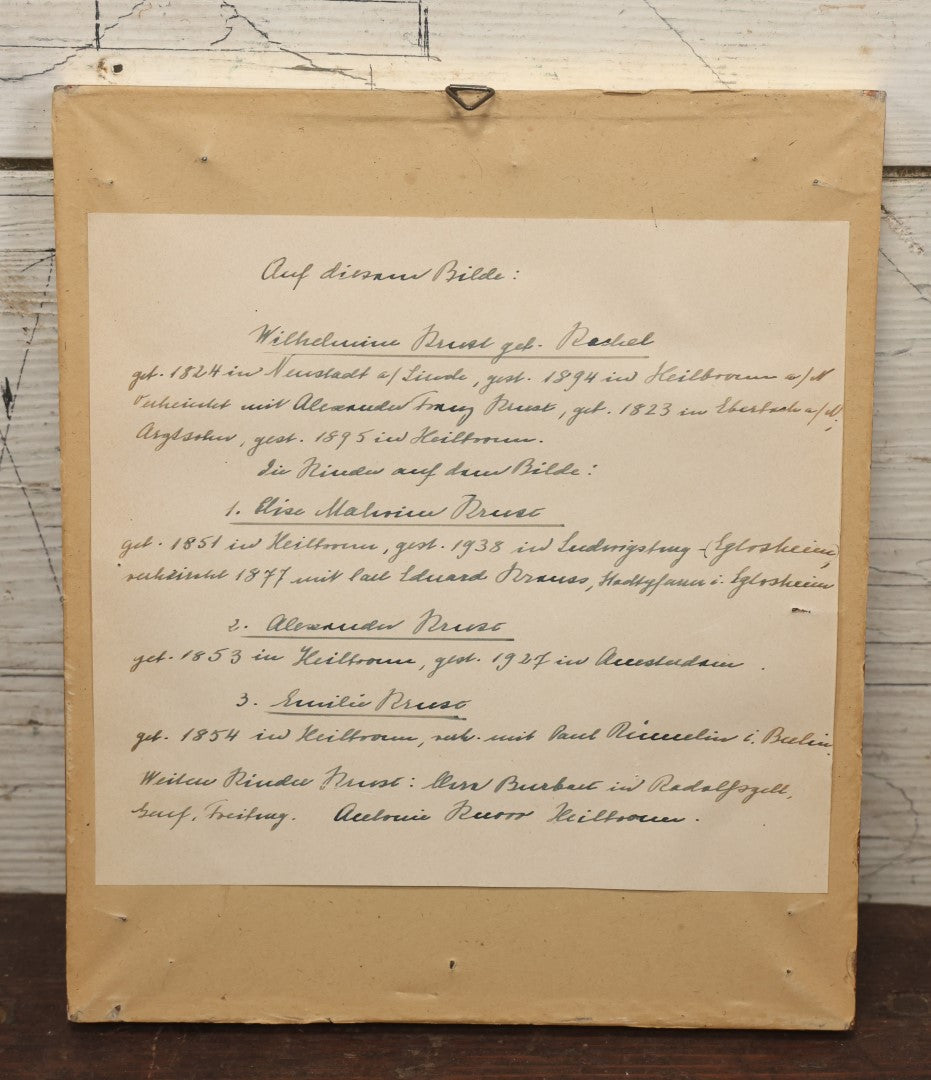 Auf diesem Bilde:
Wilhelmine Krust geb. Rachel
geb. 1824 in Neustadt a/Linde, gest. 1894 in Heilbronn a/N
Verheiratet mit Alexander Franz Krust, geb. 1823 in Eberbach a/N,
Arztsohn, gest. 1895 in Heilbronn.
Die Kinder auf dem Bilde:
1. Elise Malwine Krust
geb. 1851 in Heilbronn, gest. 1938 in Ludwigsburg-(Eglosheim)
verheiratet 1877 mit Carl Eduard Krauss, Stadtpfarrer i. Eglosheim
2. Alexander Krust
geb. 1853 in Heilbronn, gest. 1927 in Amsterdam.
3. Emilie Krust
geb. 1854 in Heilbronn, verh. mit Paul Rümelin i. Berlin
Weitere Kinder Krust: in Radolfszell,
Genf, Freiburg. Antonie Knorr Heilbronn.